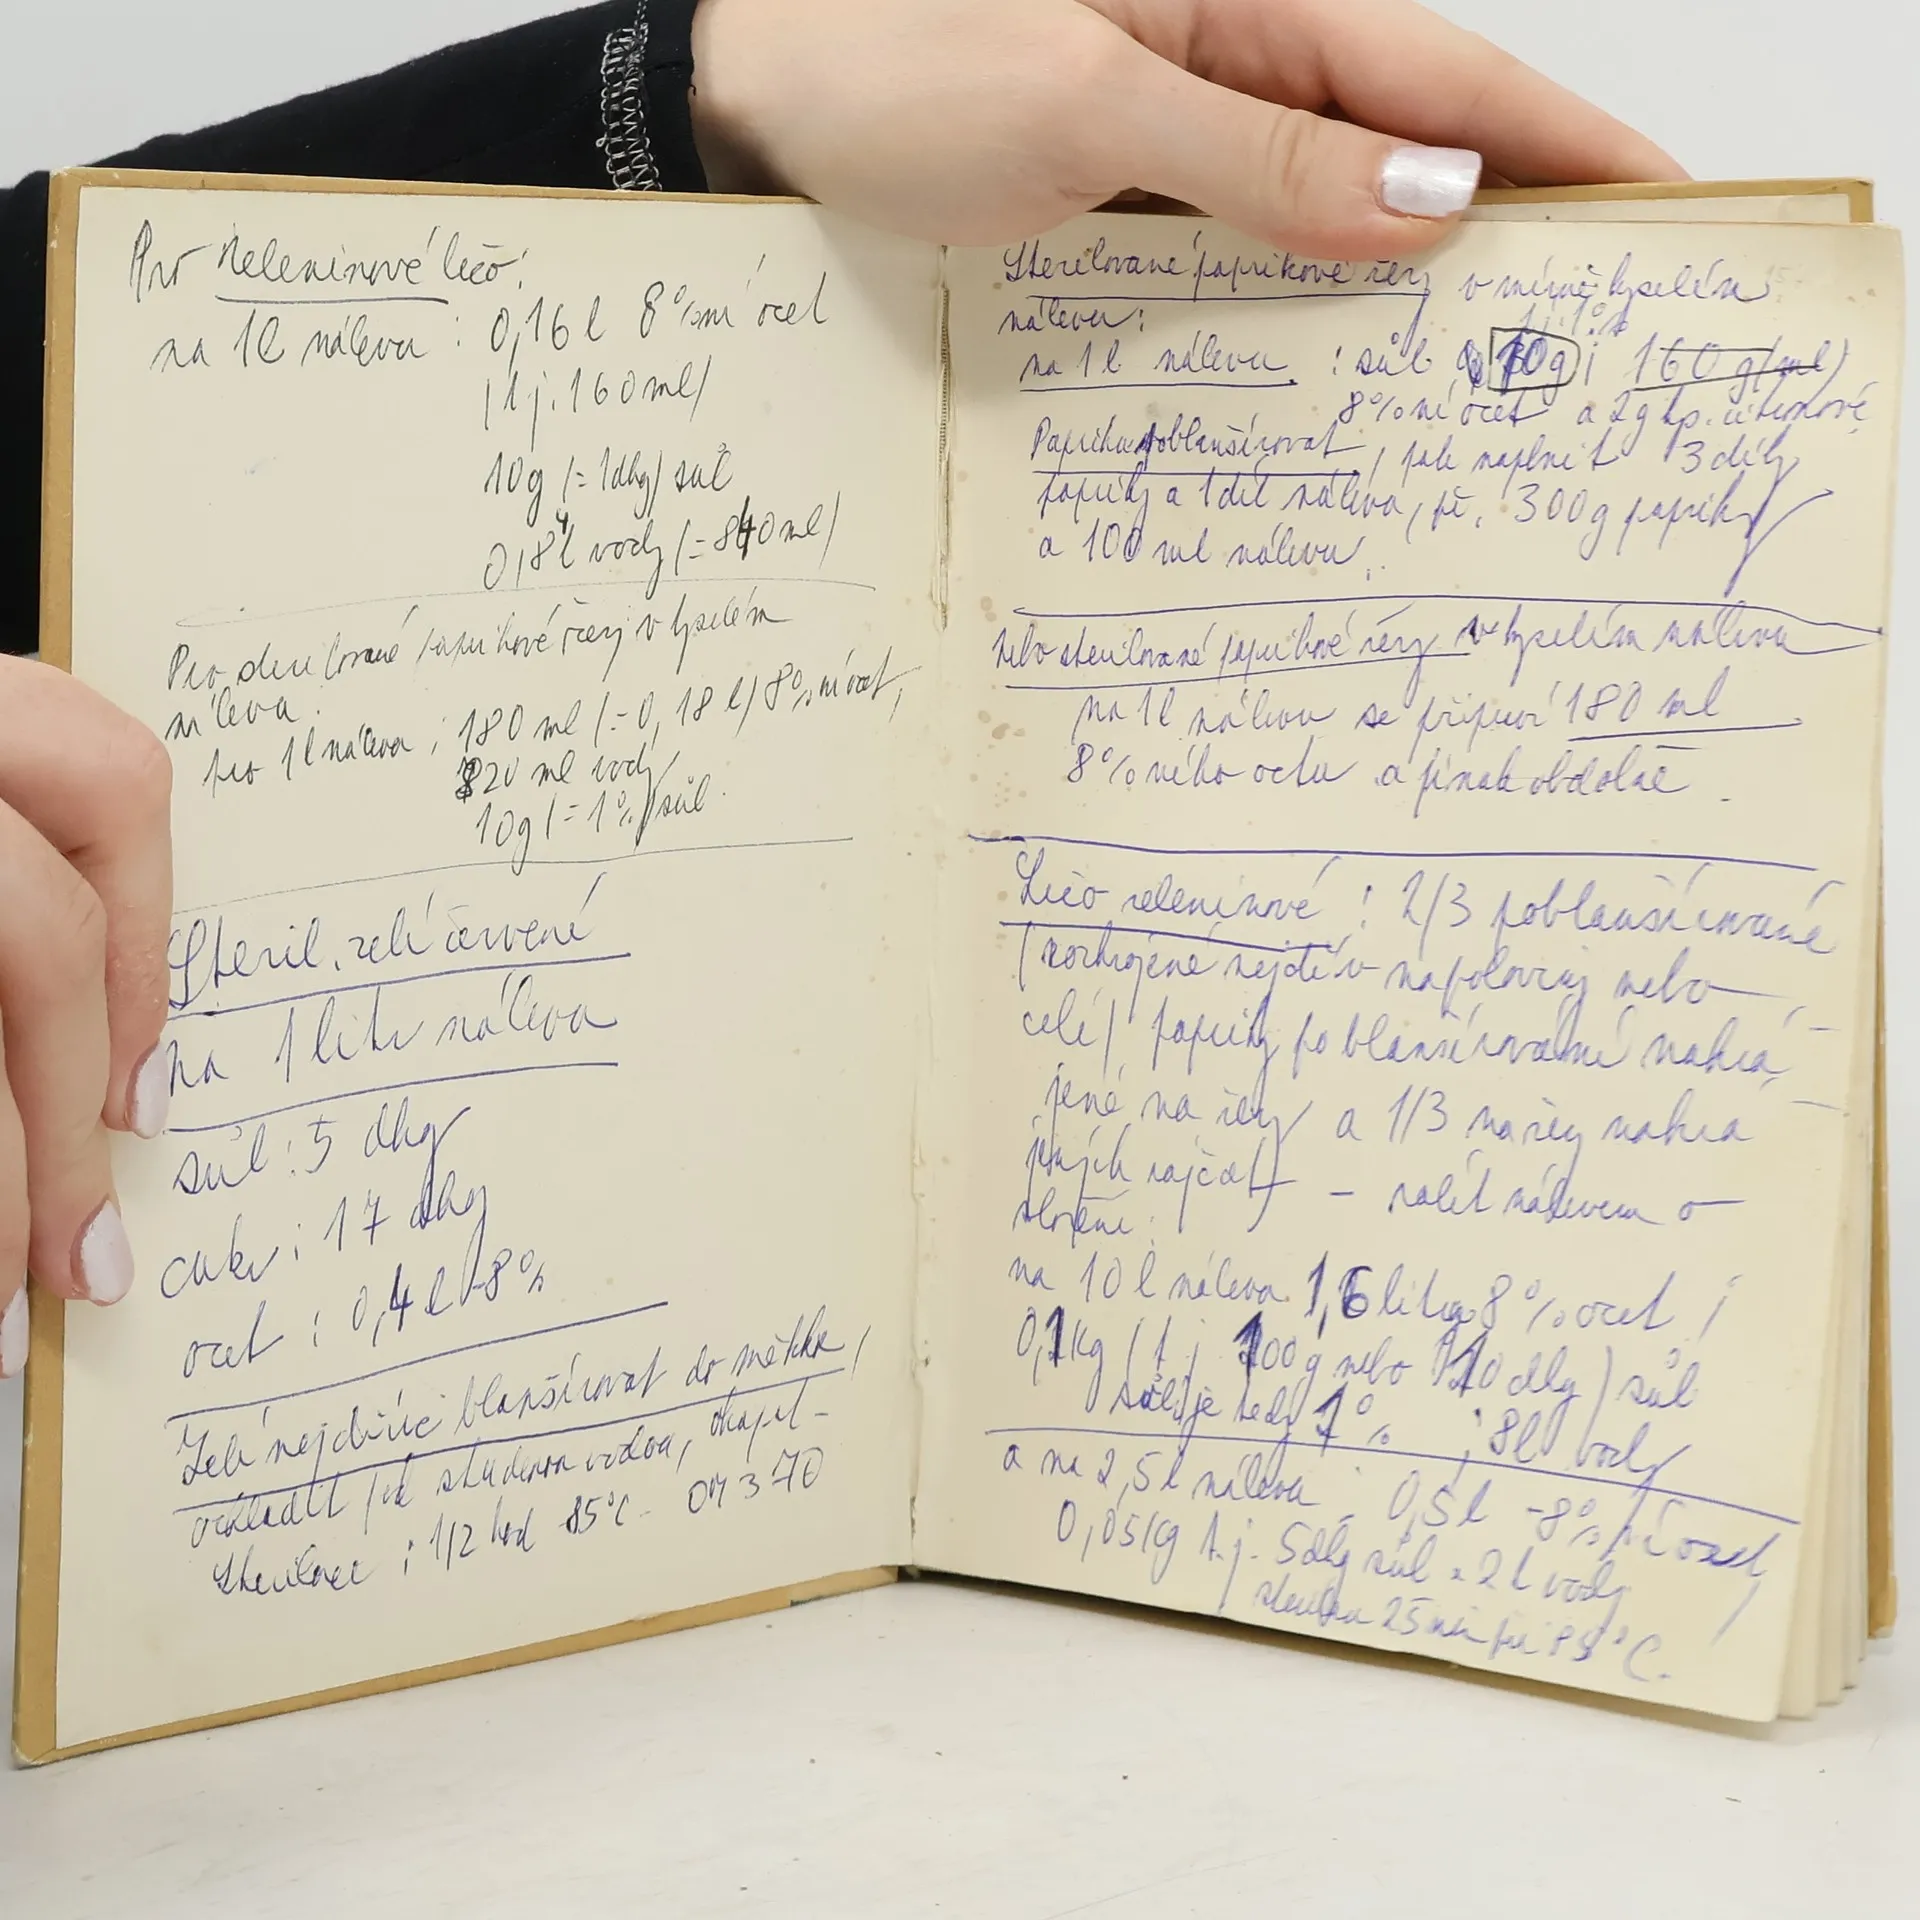 Pro zeleninové lečo:
na 1l nálevu : 0,16 l 8%ní ocet
(tj. 160 ml)
10g (= 1dkg) sůl
0,84 l vody (= 840 ml)
Pro sterilované paprikové řezy v kyselém
nálevu:
pro 1 l nálevu : 180 ml (= 0,18 l) 8%ní ocet,
820 ml vody
10g (= 1%) sůl.
Steril. zelí červené
na 1 litr nálevu
sůl : 5 dkg
cukr : 17 dkg
ocet : 0,4 l - 8%
Zelí nejdříve blanšírovat do měkka,
ochladit pod studenou vodou, okapat -
Sterilace : 1/2 hod 85°C -
Sterilované paprikové řezy v mírně kyselém
nálevu:
tj. 1%
na 1 l nálevu : sůl 10g ; 160 g (ml)
8%ní ocet a 2g kys. citronové.
Papriku poblanšírovat, pak naplnit 3 díly
papriky a 1 díl nálevu, př. 300g papriky
a 100 ml nálevu.
nebo sterilované paprikové řezy v kyselém nálevu
na 1l nálevu se připraví 180 ml
8%ního octu a jinak obdobně.
Lečo zeleninové : 2/3 poblanšírované
(rozkrojené nejdřív napolovinu nebo
celé) papriky po blanšírování nakrá-
jené na řezy a 1/3 na řezy nakrá-
jených rajčat - zalít nálevem o
složení:
na 10 l nálevu 1,6 litru 8% ocet ;
0,1kg (t.j. 100g nebo 10 dkg) sůl
sůl je tedy 1% ; 8l vody
a na 2,5l nálevu : 0,5l - 8%ní ocet,
0,05kg t.j. 5dkg sůl a 2 l vody
sterilace 25 min při 85°C.